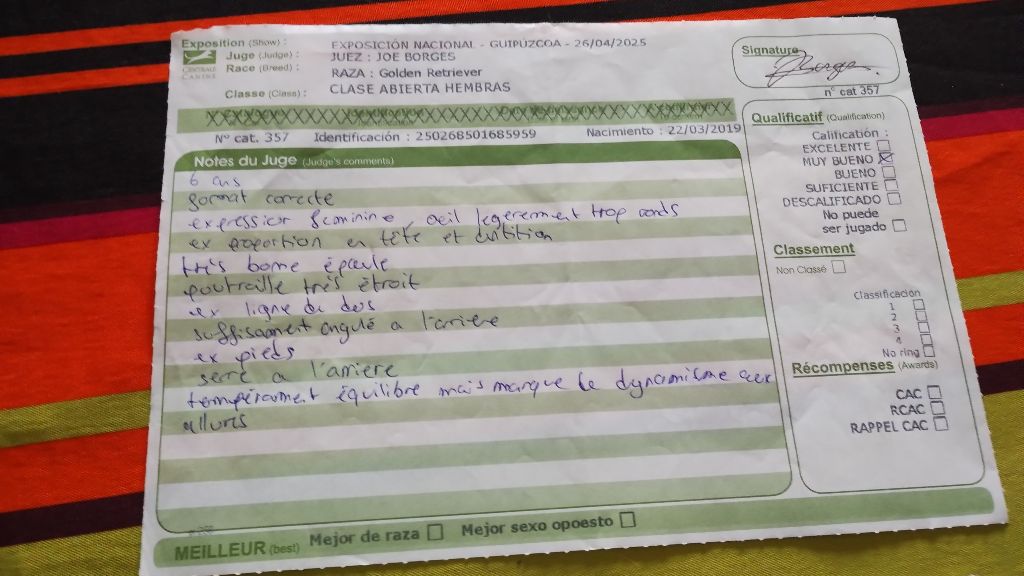 Exposition (Show) : EXPOSICIÓN NACIONAL - GUIPUZCOA - 26/04/2025
Juge (Judge) : JUEZ : JOE BORGES
Race (Breed) : RAZA : Golden Retriever
Classe (Class) : CLASE ABIERTA HEMBRAS
CENTRALE CANINE
Signature
Borges
n° cat 357
Nº cat. 357 Identificación : 250268501685959 Nacimiento : 22/03/2019
Notes du Juge (Judge's comments)
6 ans
format correcte
expression feminine, oeil legerement trop ronds
ex proportion en tête et dentition
très bonne épaule
poitraille très étroit
ex ligne du dos
suffisament angulé a l'arriere
ex pieds
serré a l'arriere
tempérament équilibre mais manque le dynamisme aux
allures
Qualificatif (Qualification)
Calification :
EXCELENTE
MUY BUENO
BUENO
SUFICIENTE
DESCALIFICADO
No puede
ser jugado
Classement
Non Classé
Classification
1
2
3
4
No ring
Récompenses (Awards)
CAC
RCAC
RAPPEL CAC
MEILLEUR (best) Mejor de raza Mejor sexo opoesto